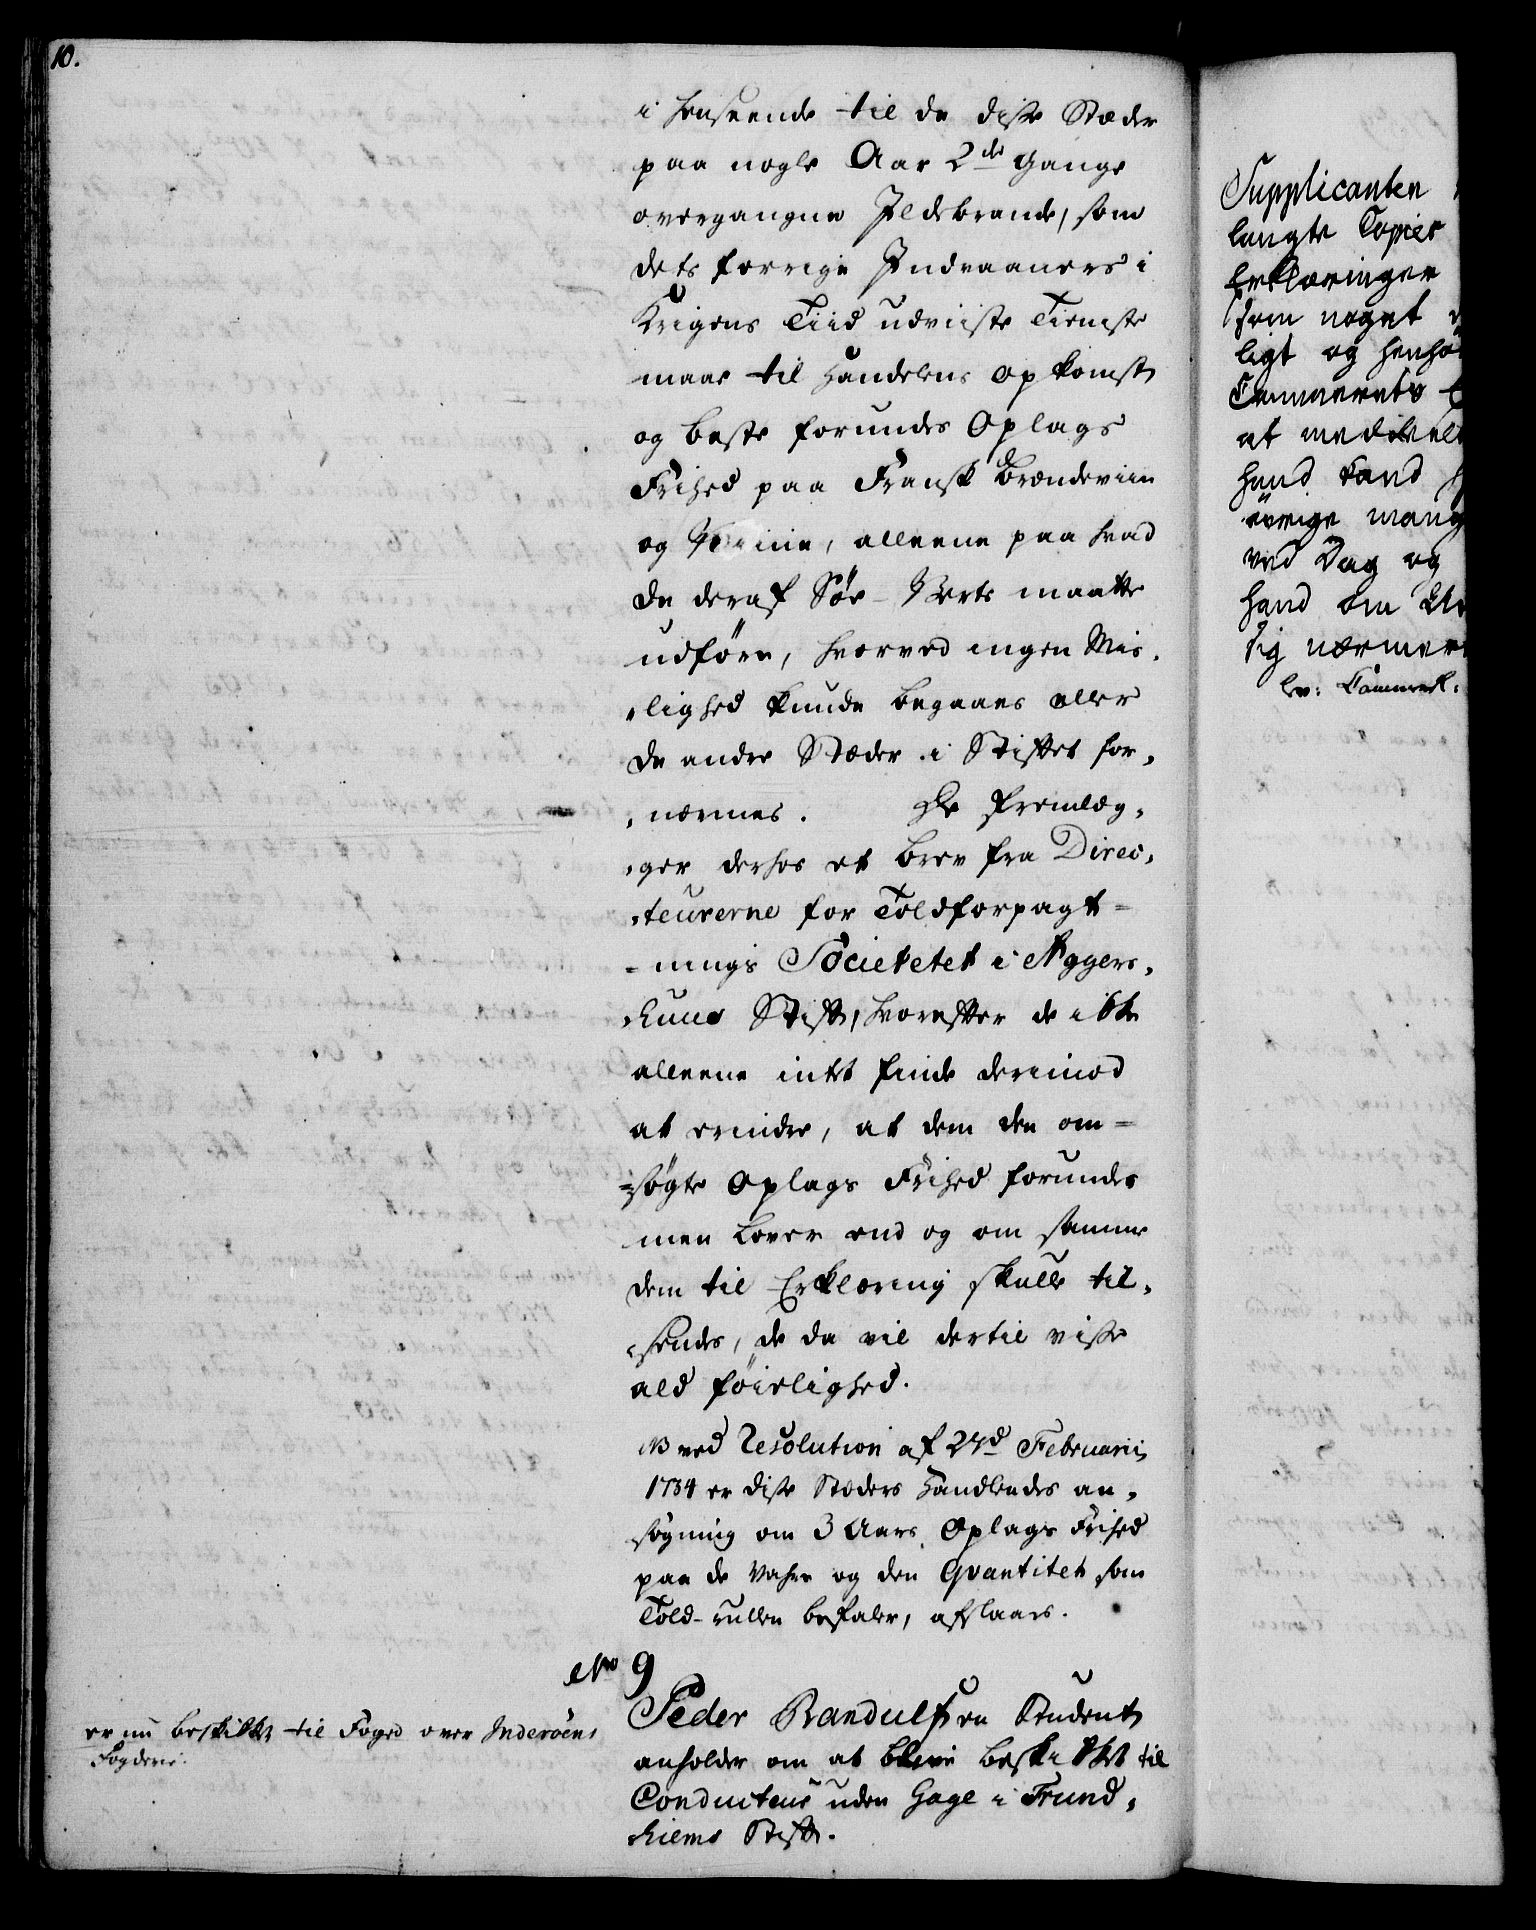 10.
i henseende til de disse Stæder
paa nogle Aar 2de Gange
overgangne Ildebrande, som
dets forrige Indvaaners i
Krigens Tiid udviiste Tieneste
maae til Handelens opkomst
og beste forundes Oplags
Frihed paa Fransk Brændeviin
og Viine, alleene paa hvad
de deraf Söe-Verts maatte
udföre, hvorved ingen Mis-
lighed kunde begaaes eller
de andre Stæder i Stiftet for-
nærmes. De fremlæg-
ger derhos et brev fra Direc-
teurerne for Toldforpagt-
nings Societetet i Aggers-
huus Stift, hvorefter de ikke
alleene intet finde derimod
at erindre, at dem den om-
søgte Oplags Frihed forundes
men lover end og om samme
dem til Erklæring skulle til-
sendes, de da vil dertil viise
ald föielighed.
NB ved Resolution af 27d Februarii
1734 er disse Stæders Handlendes an-
søgning om 3 Aars Oplags Frihed
paa de Vahre og den Qvantitet som
Told-rullen befaler, afslaaes.
No 9
Peder Randulf en Student
anholder om at blive beskikket til
Conducteur uden Gage i Trund-
hiems Stift.
er nu beskikket til Foged over Inderöens
Fogderie.
Supplicanten
langte Copier
Erklæringer
som noget
ligt og henhø
Cammerets
at meddeel
hand kand
øvrige mang
ved Dag og
hand om
sig nærmer